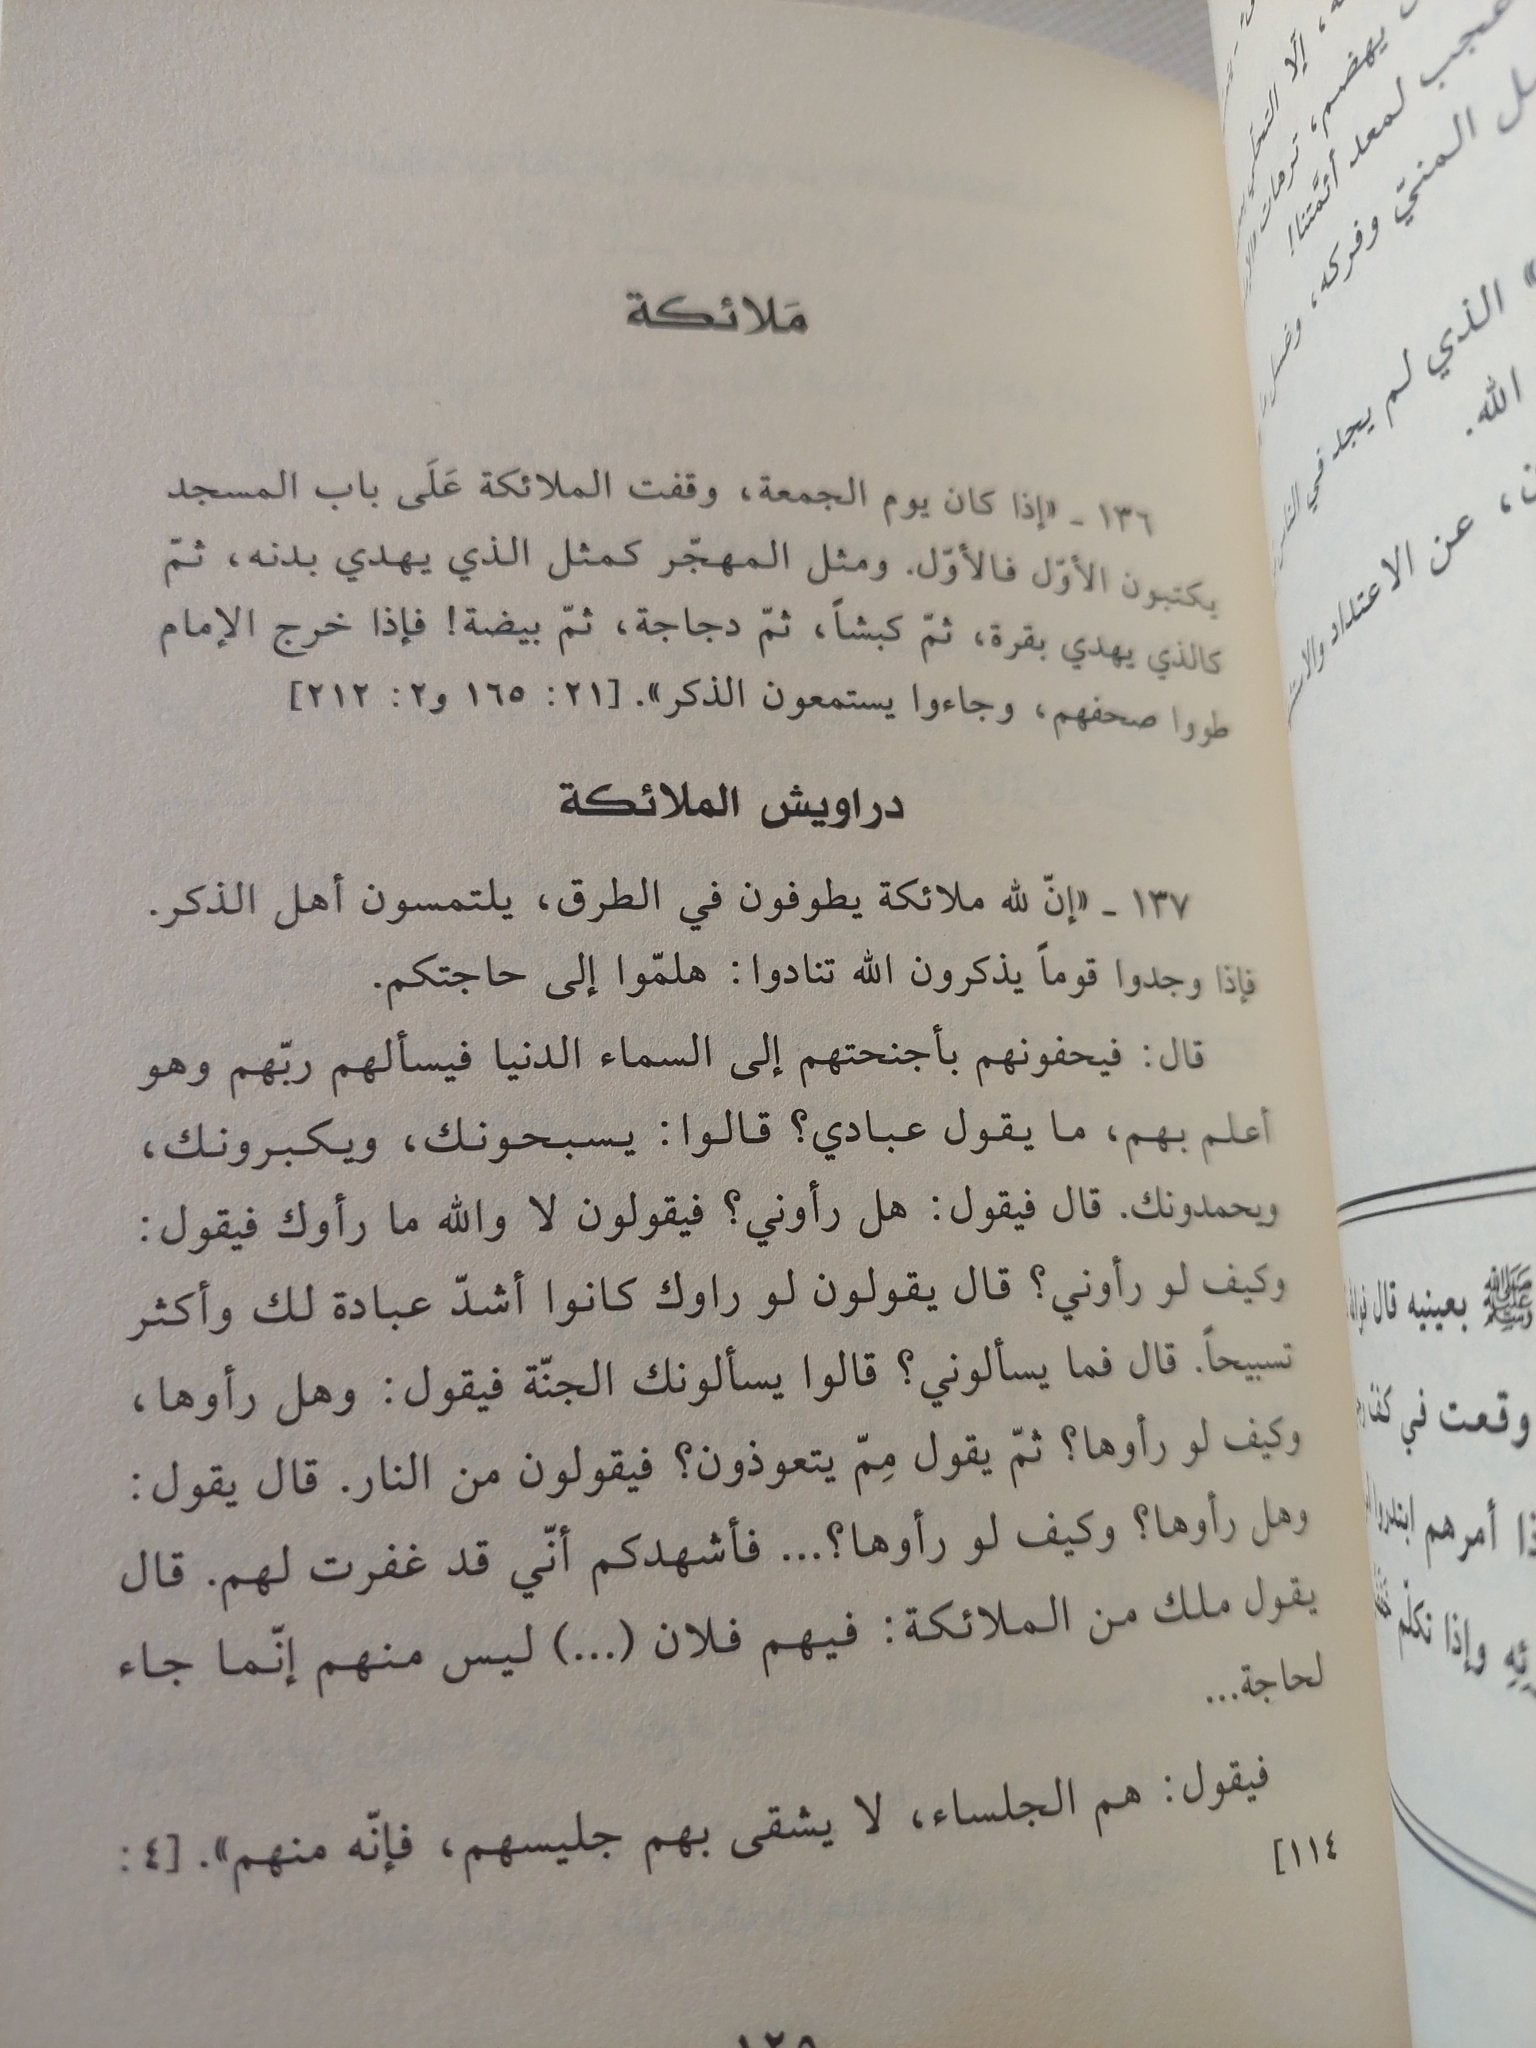 مَلائكة
١٣٦ ـ «إذا كان يوم الجمعة، وقفت الملائكة عَلَى باب المسجد
يكتبون الأوّل فالأوّل. ومثل المهجّر كمثل الذي يهدي بدنه، ثمّ
كالذي يهدي بقرة، ثمّ كبشاً، ثمّ دجاجة، ثمّ بيضة! فإذا خرج الإمام
طووا صحفهم، وجاءوا يستمعون الذكر». [٢١: ١٦٥ و٢: ٢١٢]
دراويش الملائكة
١٣٧ ـ «إنّ لله ملائكة يطوفون في الطرق، يلتمسون أهل الذكر.
فإذا وجدوا قوماً يذكرون الله تنادوا: هلمّوا إلى حاجتكم.
قال: فيحفونهم بأجنحتهم إلى السماء الدنيا فيسألهم ربّهم وهو
أعلم بهم، ما يقول عبادي؟ قالوا: يسبحونك، ويكبرونك،
ويحمدونك. قال فيقول: هل رأوني؟ فيقولون لا والله ما رأوك فيقول:
وكيف لو رأوني؟ قال يقولون لو راوك كانوا أشدّ عبادة لك وأكثر
تسبيحاً. قال فما يسألوني؟ قالوا يسألونك الجنّة فيقول: وهل رأوها،
وكيف لو رأوها؟ ثمّ يقول مِمّ يتعوذون؟ فيقولون من النار. قال يقول:
وهل رأوها؟ وكيف لو رأوها؟... فأشهدكم أنّي قد غفرت لهم. قال
يقول ملك من الملائكة: فيهم فلان (...) ليس منهم إنّما جاء
لحاجة...
فيقول: هم الجلساء، لا يشقى بهم جليسهم، فإنّه منهم». [٤:
١١٤]
، إلّا التحلّي
يهضم، ترهات
عجب لمعد أئمّتنا!
المنيّ وفركه، وغسل
الذي لم يجد في الناس
الله.
، عن الاعتداد
ﷺ بعينيه قال
وقعت في كفّ
أمرهم ابتدروا
وإذا تكلّم